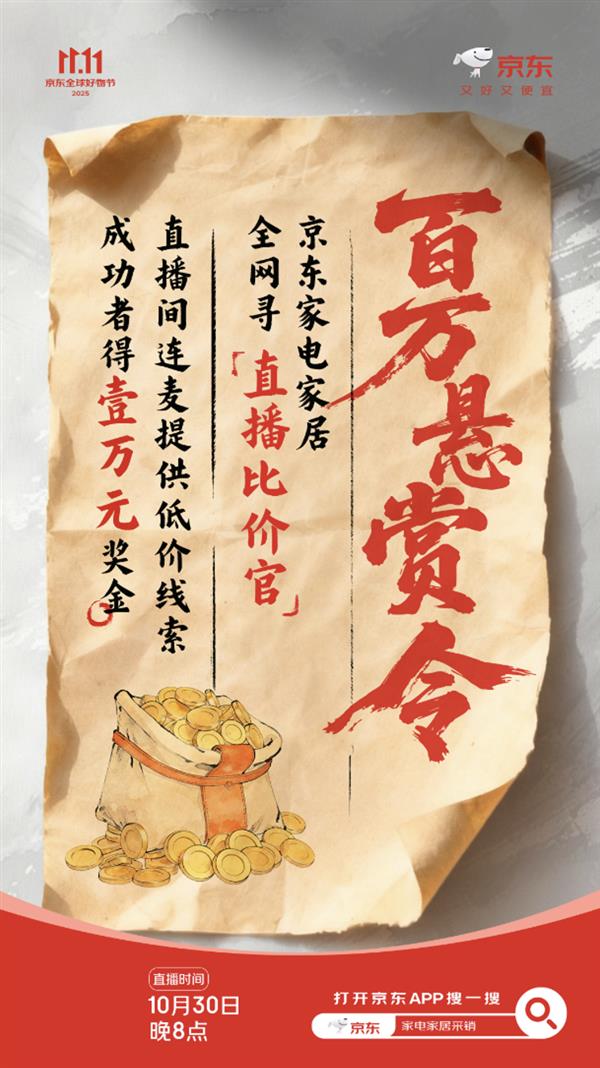 11.11
京东全球好物节
2025
京东
又好又便宜
百万悬赏令
京东家电家居
全网寻「直播比价官」
直播间连麦提供低价线索
成功者得壹万元奖金
直播时间
10月30日
晚8点
打开京东APP搜一搜
京东
家电家居采销